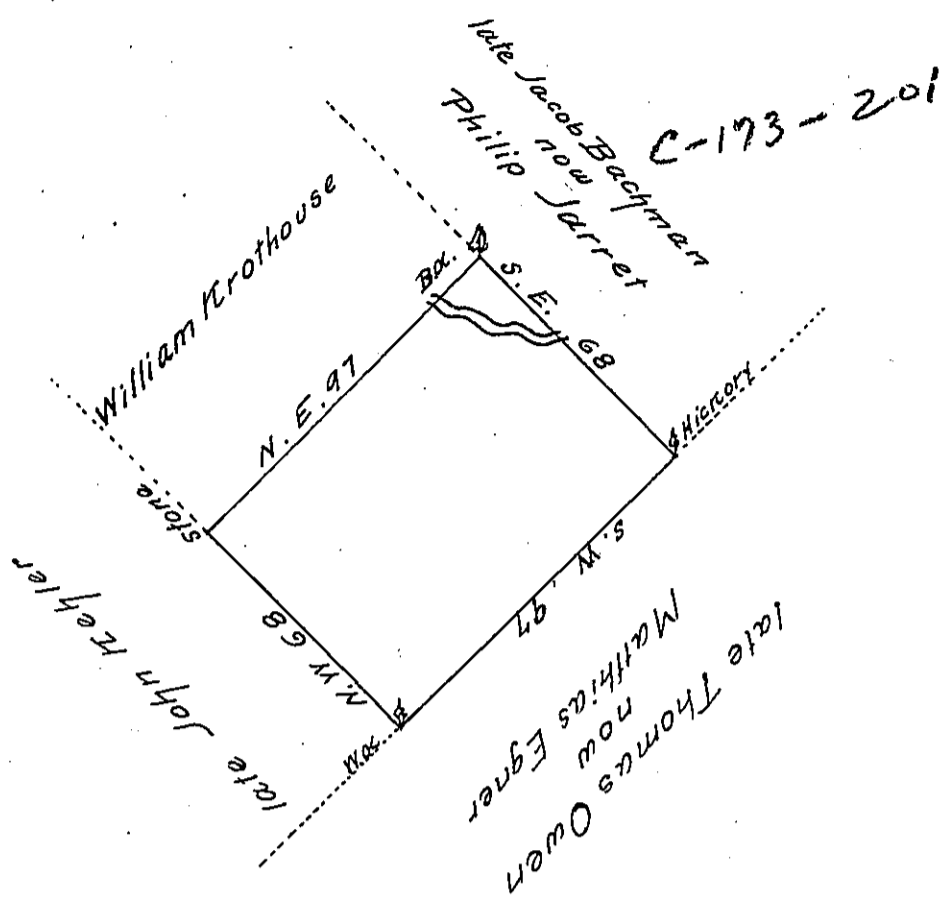 C-173-201
late Jacob Bachman
now
Philip Jarret
William Krothouse
B.O.
S. E. 68
N. E. 97
Hickory
Stone
S. W. 97
N. W 68
W.O.
late John Kehler
late Thomas Owen
now
Matthias Egner